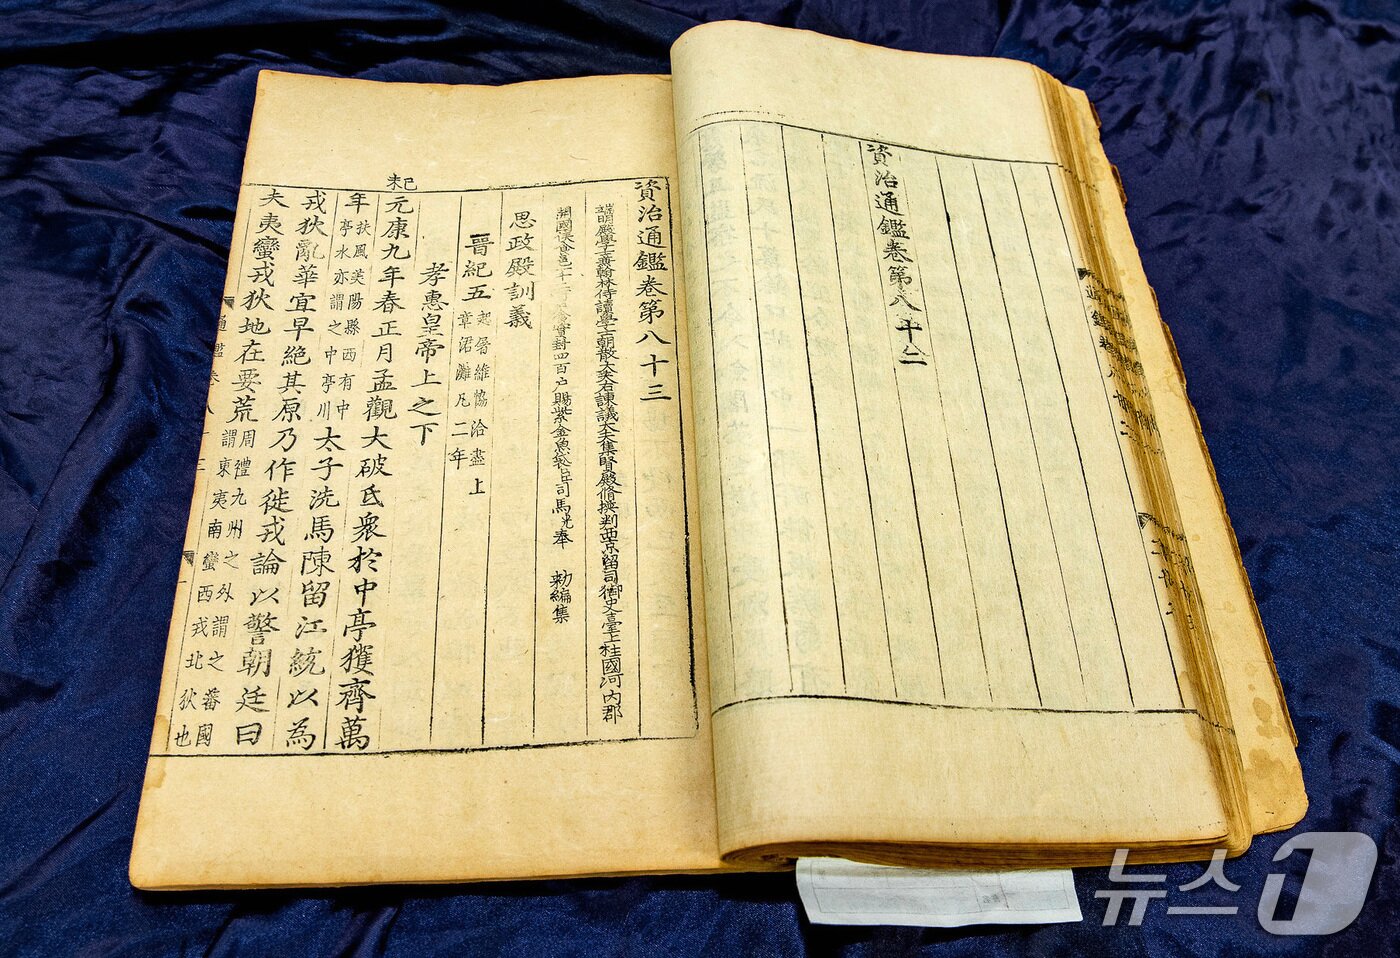 資治通鑑卷第八十二
資治通鑑卷第八十三
端明殿學士兼翰林侍讀學士朝散大夫右諫議大夫集賢殿脩撰判西京留司御史臺上柱國河內郡
開國侯食邑一千三百戶食實封四百戶賜紫金魚袋臣司馬光奉 勑編集
思政殿訓義
晉紀五 起屠維協洽盡上
章涒灘凡二年
孝惠皇帝上之下
己未
元康九年春正月孟觀大破氐衆於中亭獲齊萬
年 扶風美陽縣西有中
亭水亦謂之中亭川 太子洗馬陳留江統以為
戎狄亂華宜早絶其原乃作徙戎論以警朝廷曰
夫夷蠻戎狄地在要荒 周禮九州之外謂之蕃國
謂東夷南蠻西戎北狄也
通鑑卷八十三
뉴스1